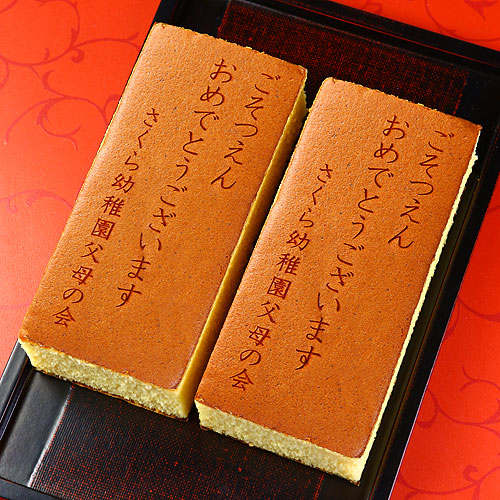 ごそつえん
おめでとうございます
さくら幼稚園父母の会
ごそつえん
おめでとうございます
さくら幼稚園父母の会